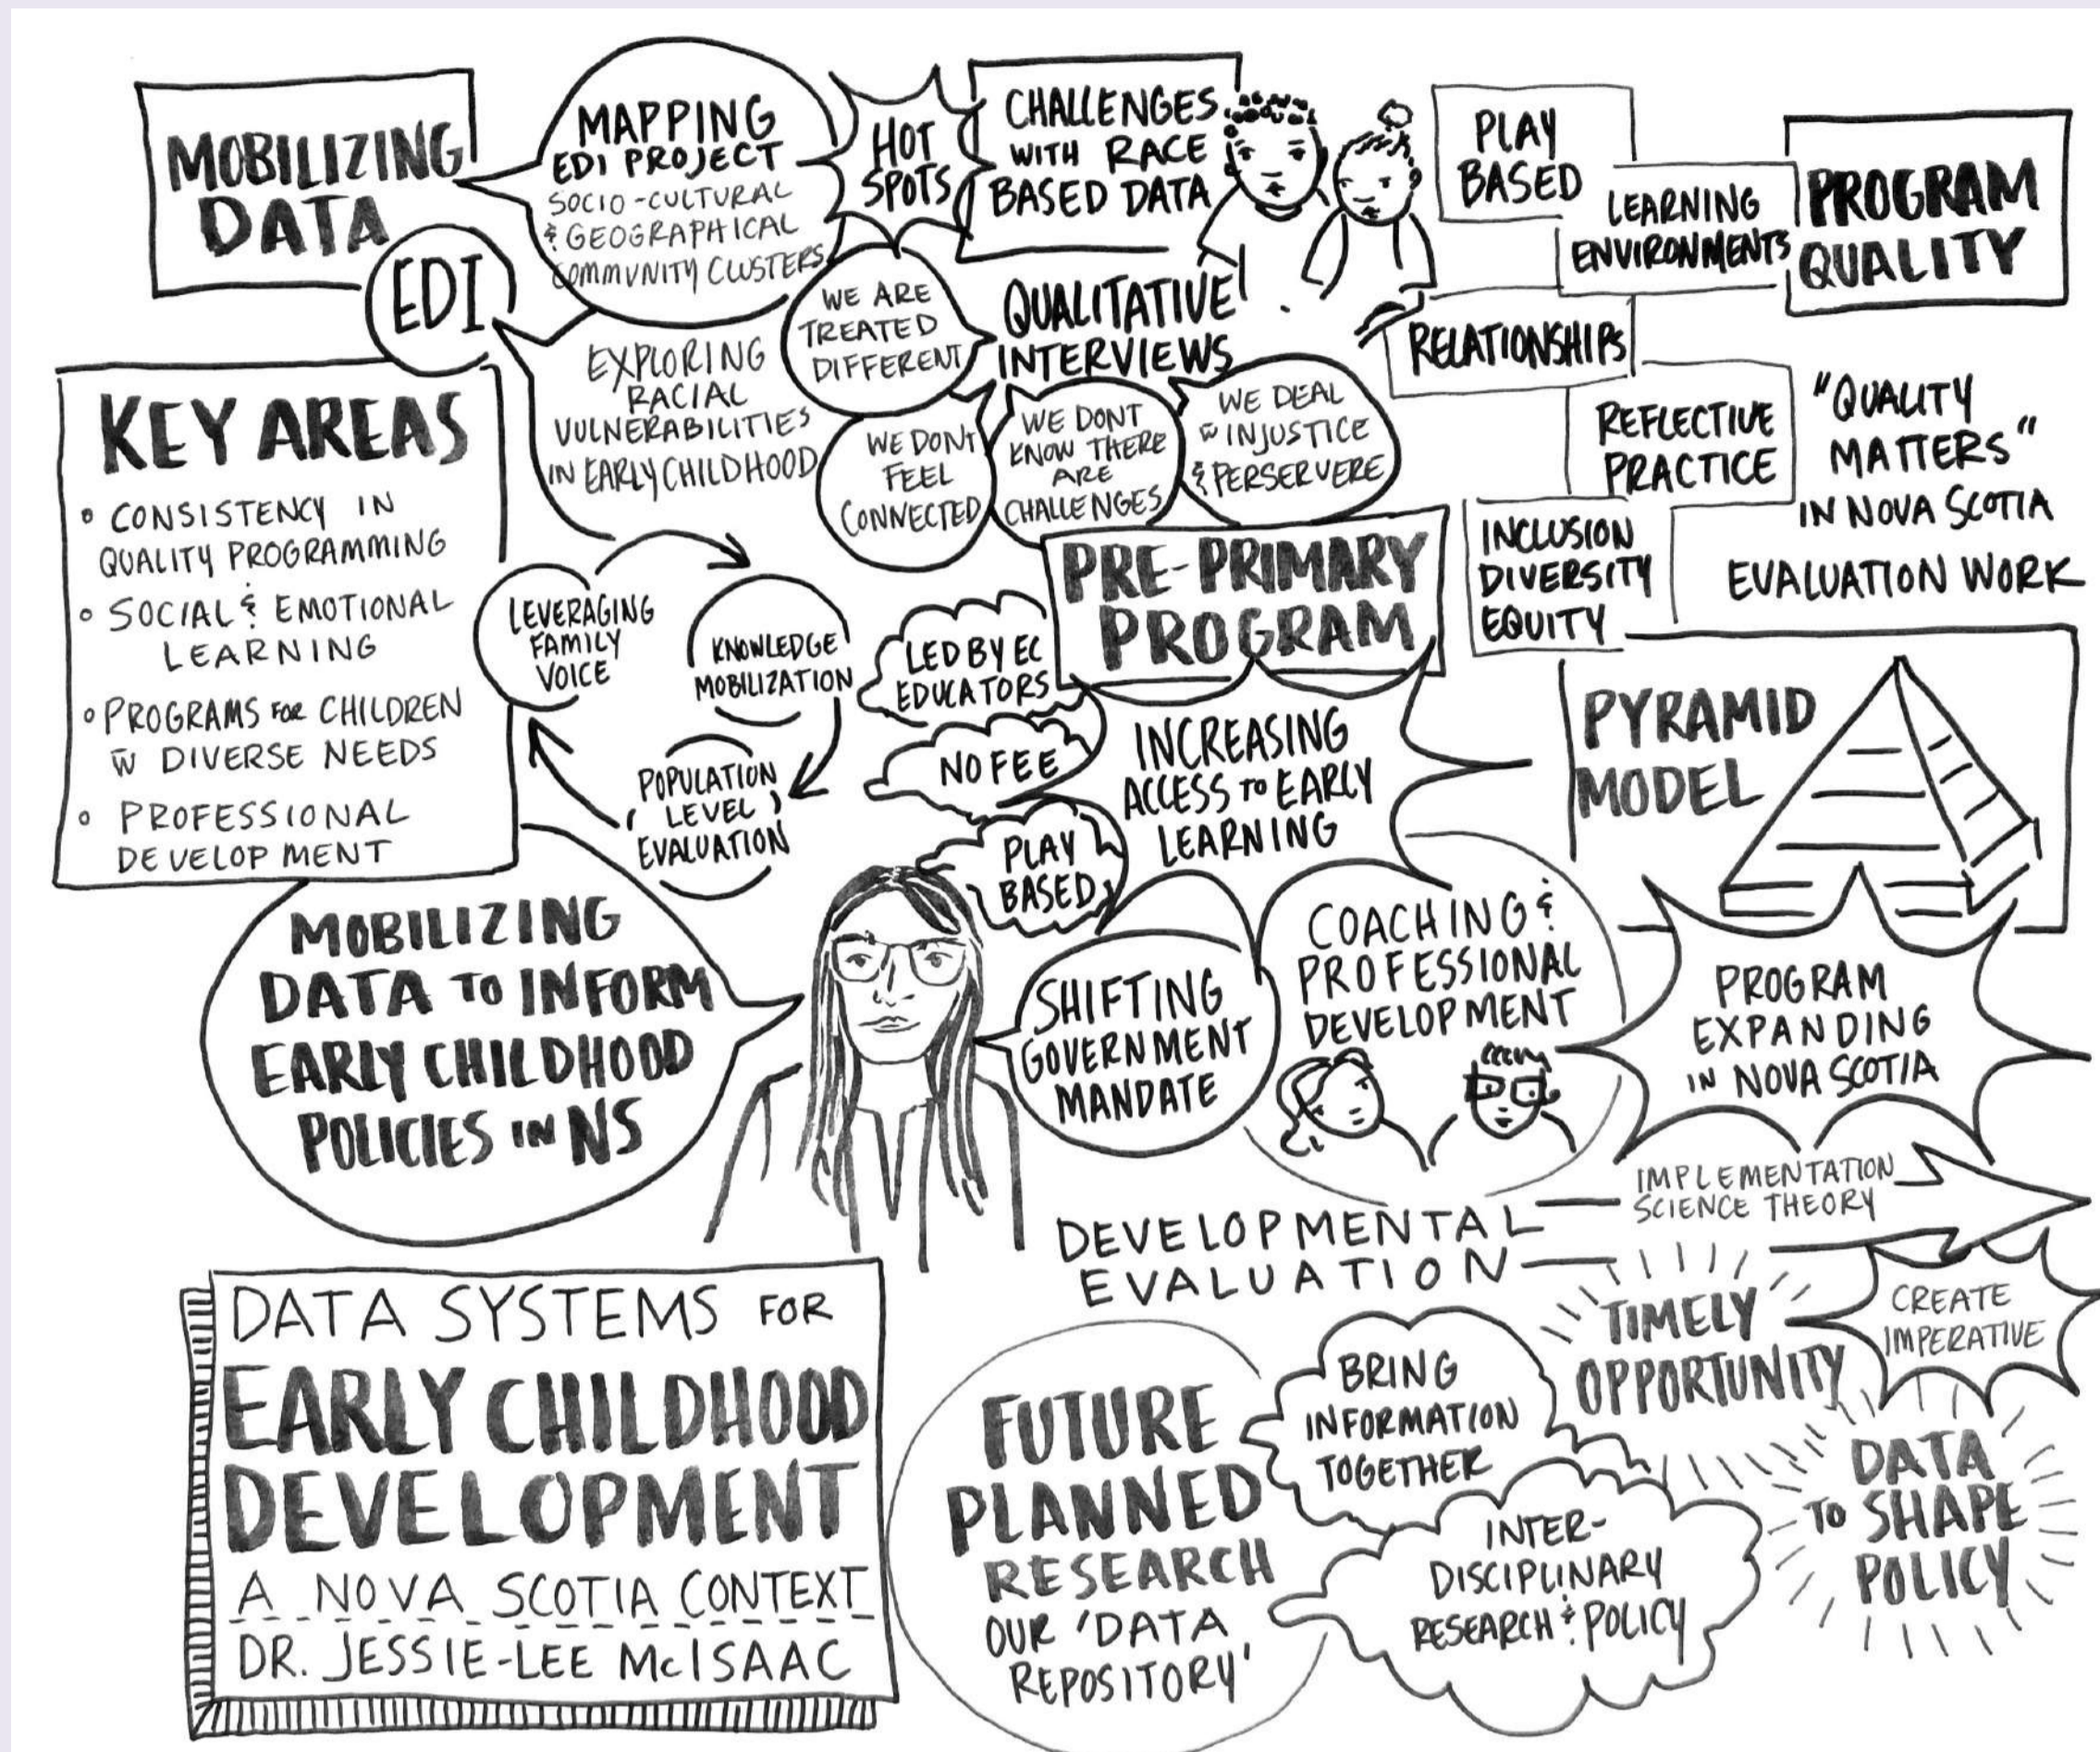 MOBILIZING
DATA
EDI
MAPPING
EDI PROJECT
SOCIO-CULTURAL
& GEOGRAPHICAL
COMMUNITY CLUSTERS
HOT
SPOTS
CHALLENGES
WITH RACE
BASED DATA
EXPLORING
RACIAL
VULNERABILITIES
IN EARLY CHILDHOOD
QUALITATIVE
INTERVIEWS
WE ARE
TREATED
DIFFERENT
WE DONT
FEEL
CONNECTED
WE DONT
KNOW THERE
ARE
CHALLENGES
WE DEAL
W INJUSTICE
& PERSERVERE
PLAY
BASED
LEARNING
ENVIRONMENTS
PROGRAM
QUALITY
RELATIONSHIPS
REFLECTIVE
PRACTICE
INCLUSION
DIVERSITY
EQUITY
"QUALITY
MATTERS"
IN NOVA SCOTIA
EVALUATION WORK
KEY AREAS
• CONSISTENCY IN
QUALITY PROGRAMMING
• SOCIAL & EMOTIONAL
LEARNING
• PROGRAMS FOR CHILDREN
W DIVERSE NEEDS
• PROFESSIONAL
DEVELOPMENT
LEVERAGING
FAMILY
VOICE
KNOWLEDGE
MOBILIZATION
POPULATION
LEVEL
EVALUATION
PRE-PRIMARY
PROGRAM
LED BY EC
EDUCATORS
NO FEE
PLAY
BASED
INCREASING
ACCESS TO EARLY
LEARNING
PYRAMID
MODEL
MOBILIZING
DATA TO INFORM
EARLY CHILDHOOD
POLICIES IN NS
SHIFTING
GOVERNMENT
MANDATE
COACHING &
PROFESSIONAL
DEVELOPMENT
PROGRAM
EXPANDING
IN NOVA SCOTIA
IMPLEMENTATION
SCIENCE THEORY
DEVELOPMENTAL
EVALUATION
DATA SYSTEMS FOR
EARLY CHILDHOOD
DEVELOPMENT
A NOVA SCOTIA CONTEXT
DR. JESSIE-LEE McISAAC
FUTURE
PLANNED
RESEARCH
OUR 'DATA
REPOSITORY'
BRING
INFORMATION
TOGETHER
INTER-
DISCIPLINARY
RESEARCH & POLICY
TIMELY
OPPORTUNITY
CREATE
IMPERATIVE
DATA
TO SHAPE
POLICY